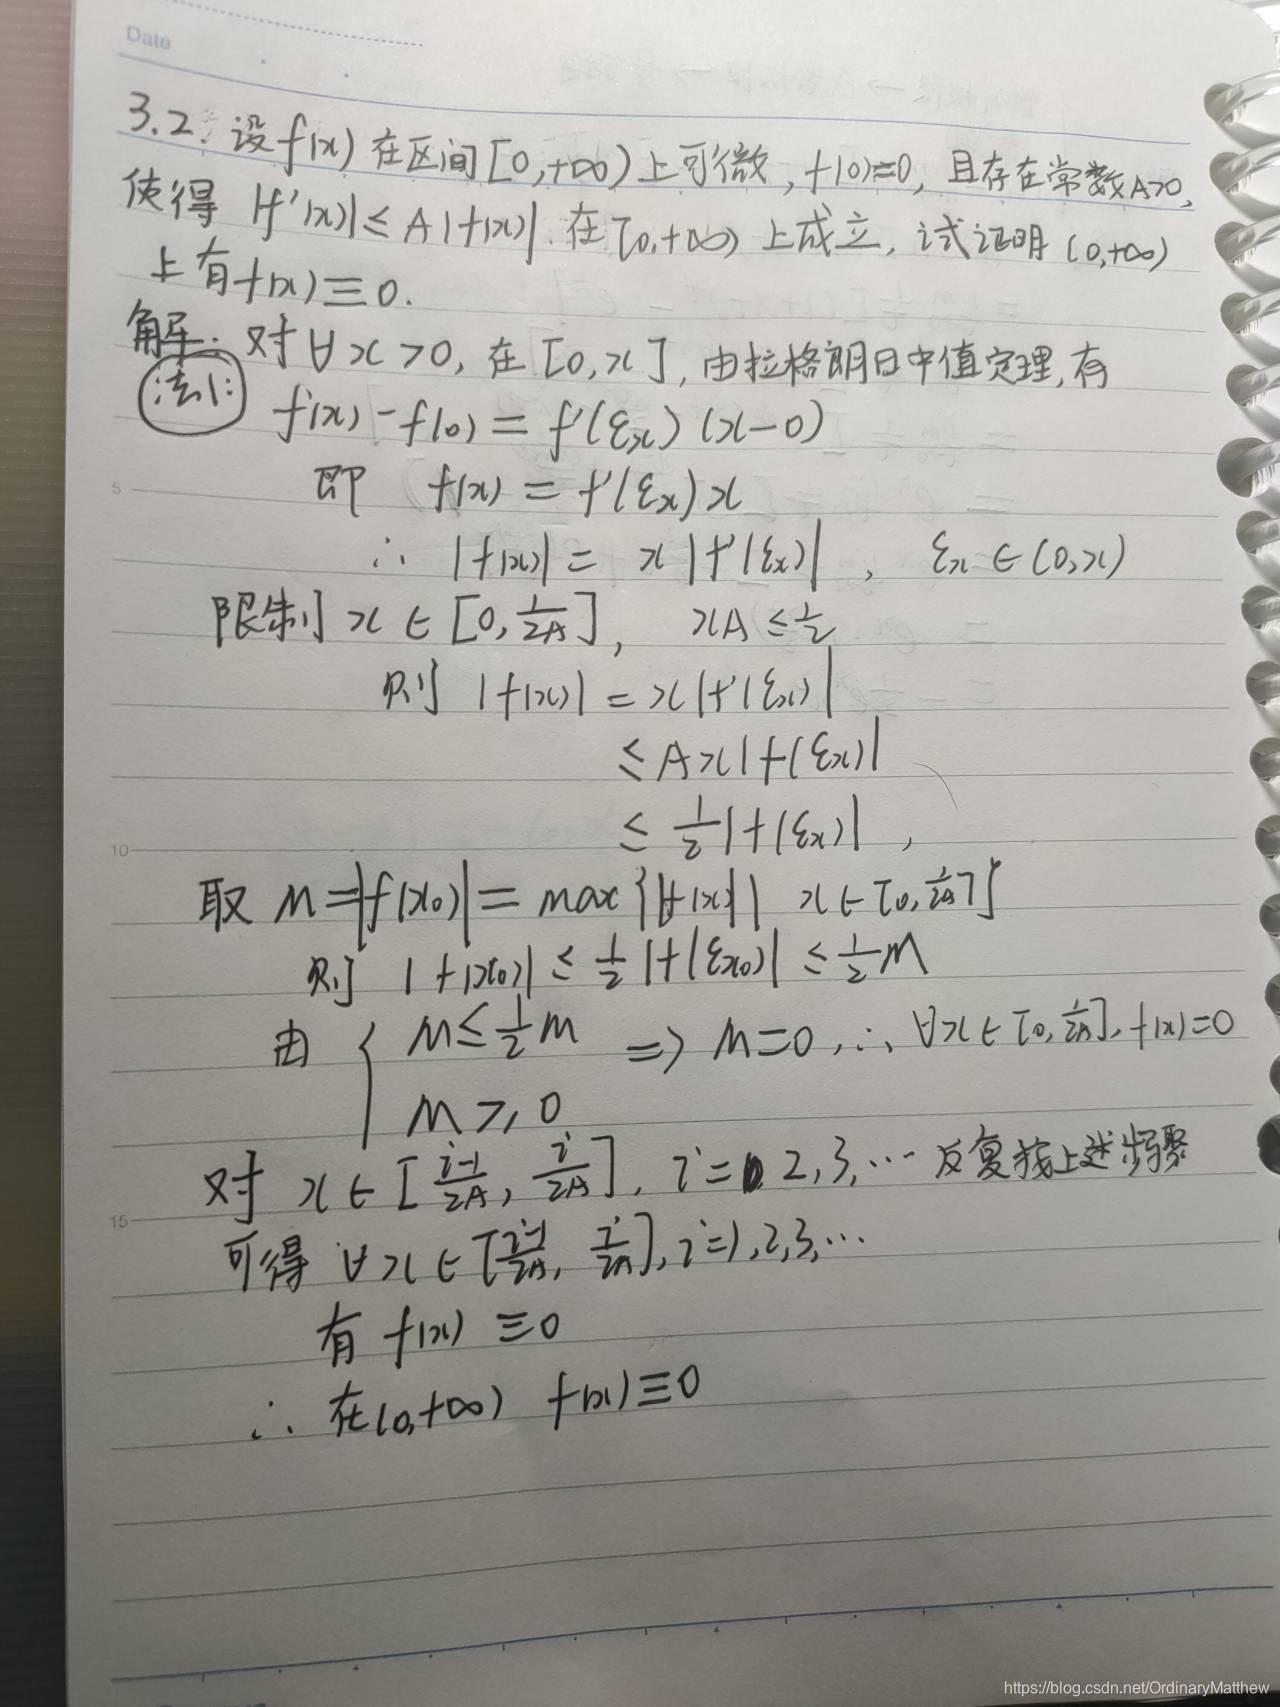 Date
3.2. 设f(x)在区间[0,+∞)上可微,f(0)=0,且存在常数A>0,
使得 |f'(x)| ≤ A|f(x)|.在[0,+∞)上成立,试证明(0,+∞)
上有f(x)≡0.
解:对∀x>0,在[0,x],由拉格朗日中值定理,有
法1:
f(x)-f(0)=f'(ξx)(x-0)
即 f(x)=f'(ξx)x
∴ |f(x)|= x|f'(ξx)| , ξx∈(0,x)
5
限制x∈[0,1/2A], xA≤1/2
则 |f(x)|=x|f'(ξx)|
≤Ax|f(ξx)|
≤1/2|f(ξx)|,
10
取 M=|f(x0)|=max{|f(x)|| x∈[0,1/2A]}
则 |f(x0)|≤1/2|f(ξx0)|≤1/2M
由 { M≤1/2M => M=0,∴∀x∈[0,1/2A],f(x)=0
M≥0
对 x∈[i-1/2A, i/2A], i= 2,3,… 反复按上述步骤
15
可得 ∀x∈[i-1/2A, i/2A],i=1,2,3,…
有 f(x)≡0
∴ 在(0,+∞) f(x)≡0
https://blog.csdn.net/OrdinaryMatthew